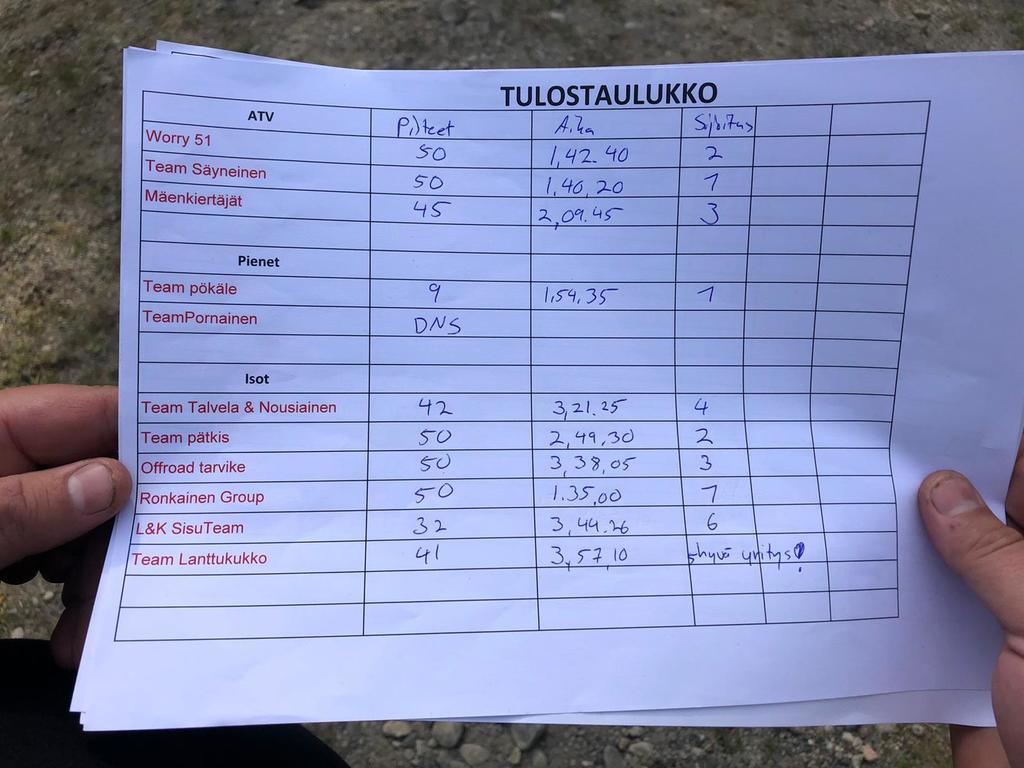 TULOSTAULUKKO
ATV Pilteet Aika Sijoitus
Worry 51 50 1,42.40 2
Team Säyneinen 50 1,40,20 1
Mäenkiertäjät 45 2,09.45 3
Pienet
Team pökäle 9 1.54.35 1
TeamPornainen DNS
Isot
Team Talvela & Nousiainen 42 3,21.25 4
Team pätkis 50 2,49,30 2
Offroad tarvike 50 3,38,05 3
Ronkainen Group 50 1.35,00 1
L&K SisuTeam 32 3,44.26 6
Team Lanttukukko 41 3,57,10 5 hyvä yritys!